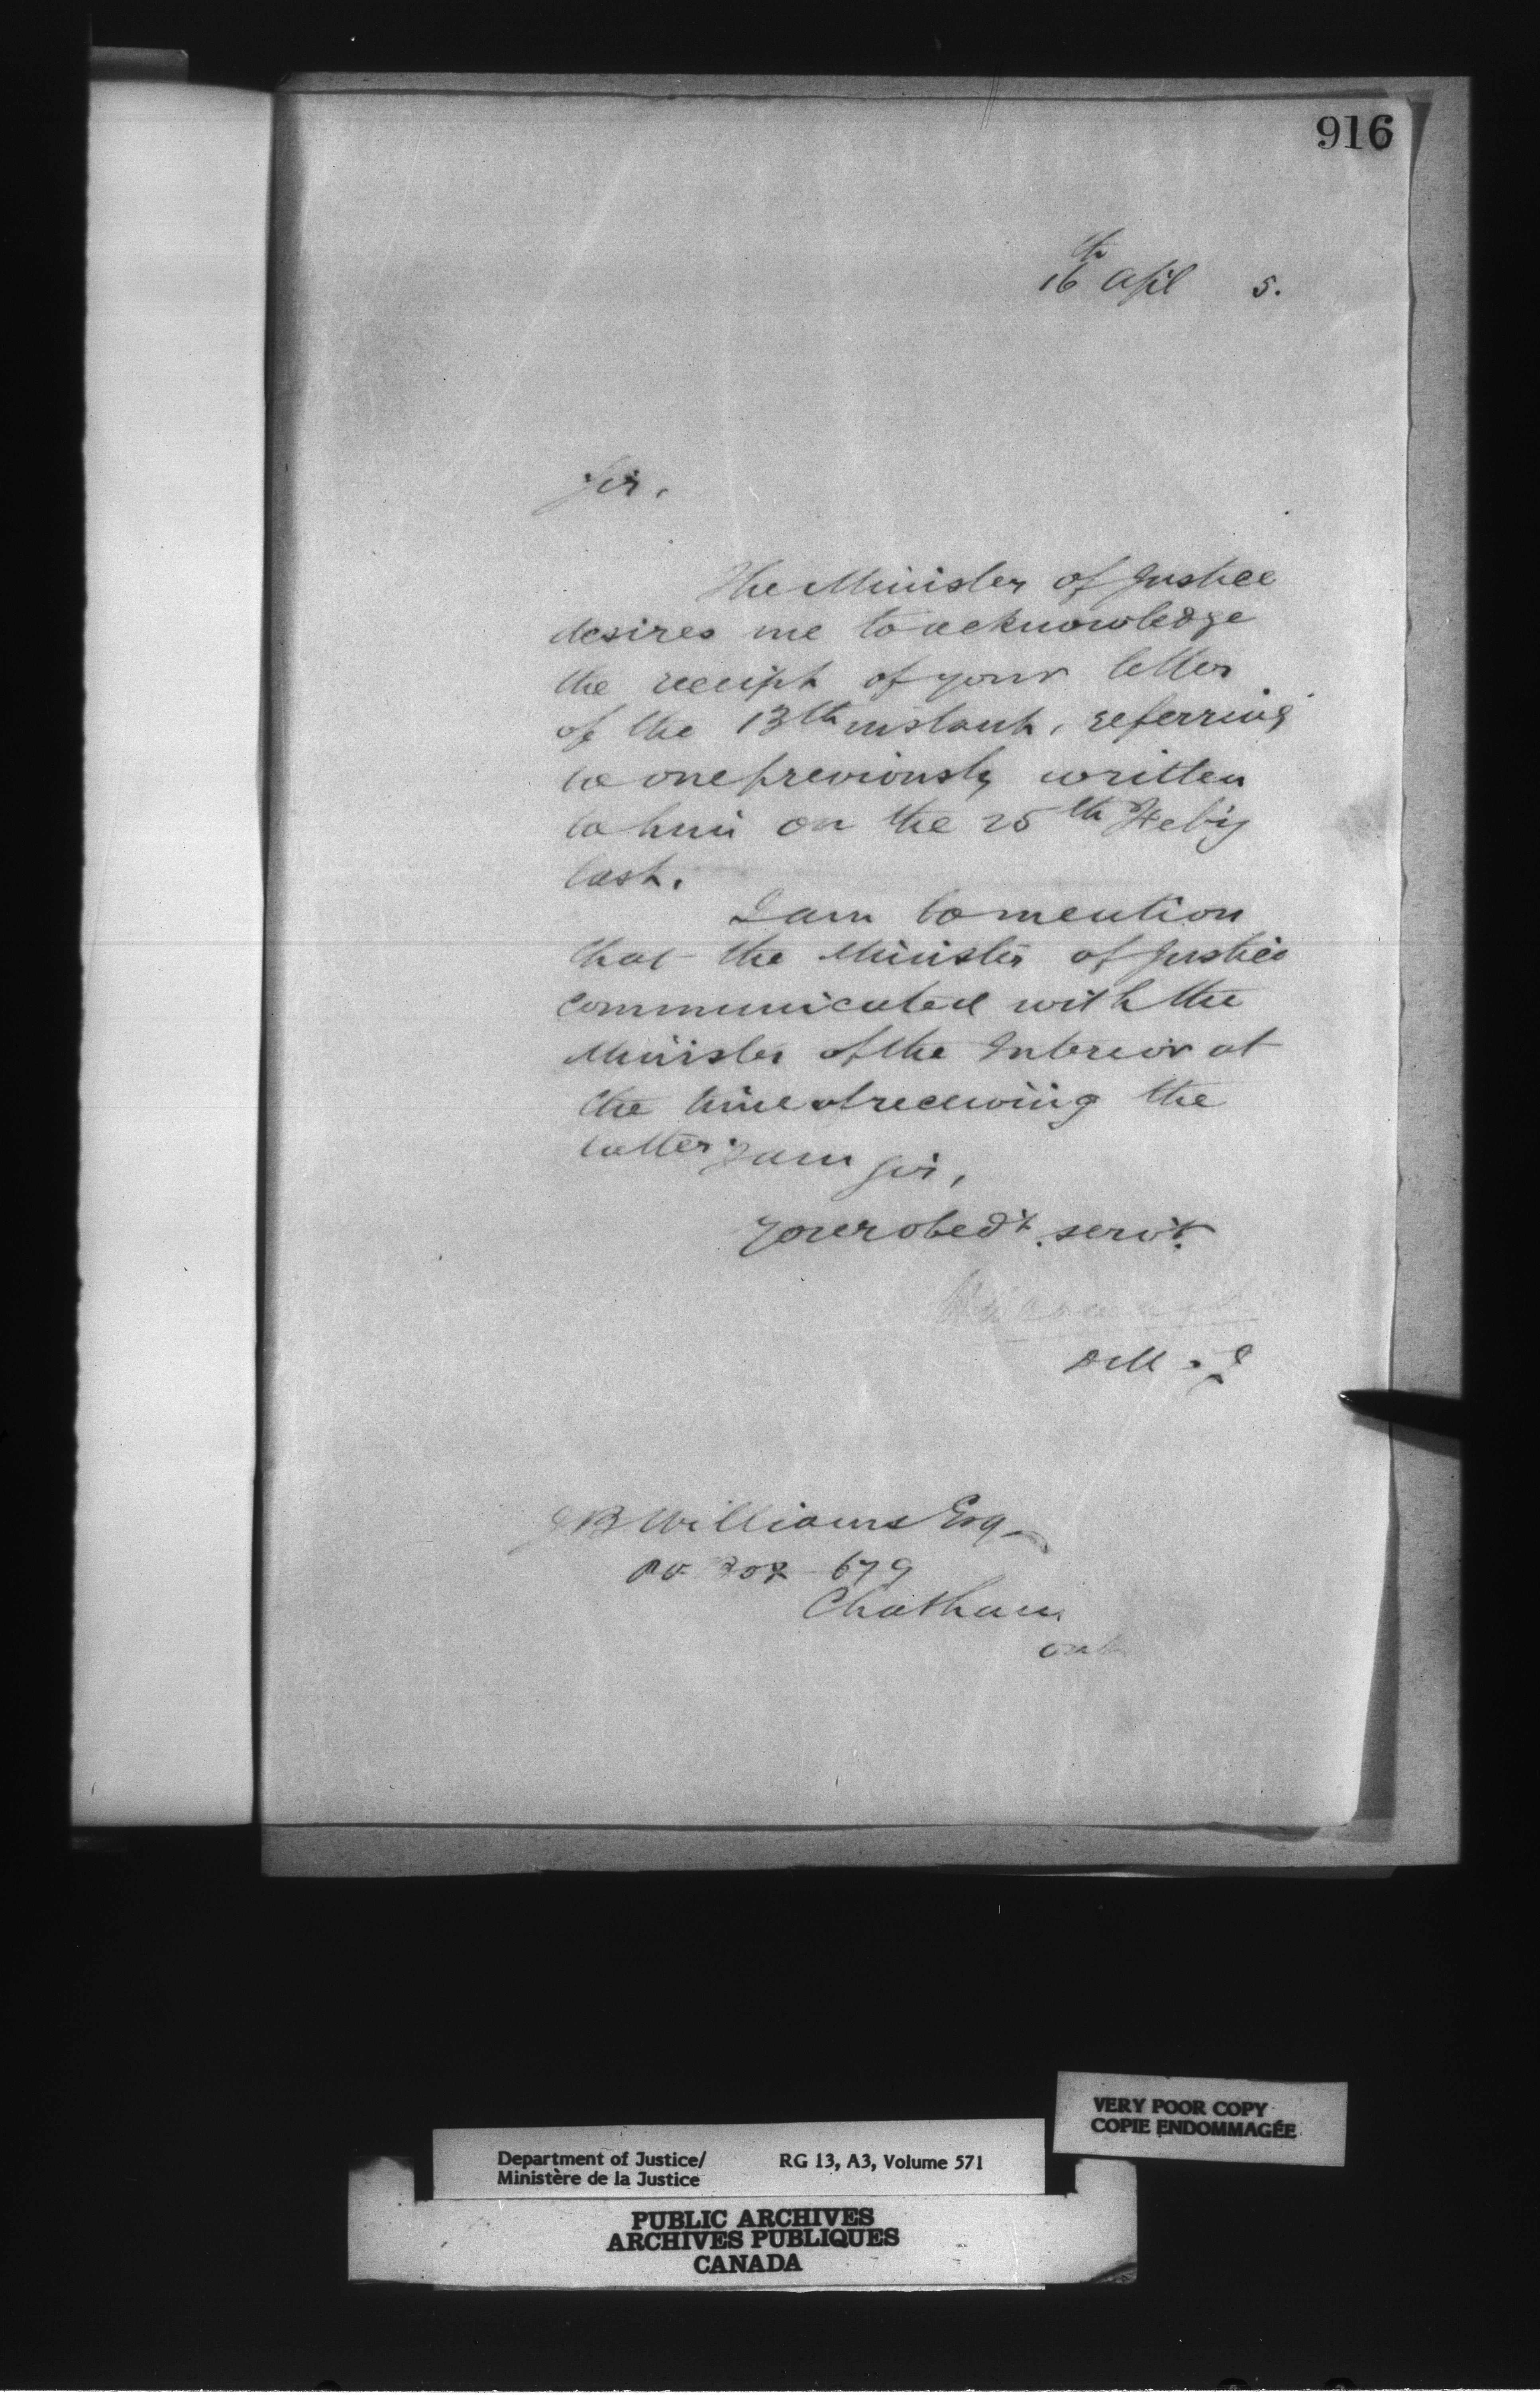 916
16th April 5.
Sir,
The Minister of Justice
desires me to acknowledge
the receipt of your letter
of the 13th instant, referring
to one previously written
to him on the 25th Feb'y
last.
I am to mention
that the Minister of Justice
communicated with the
Minister of the Interior at
the time of receiving the
latter.
I am Sir,
Your obed't serv't.
D M J
J B Williams Esq
PO Box 679
Chatham
Ont
VERY POOR COPY
COPIE ENDOMMAGÉE
Department of Justice/ RG 13, A3, Volume 571
Ministère de la Justice
PUBLIC ARCHIVES
ARCHIVES PUBLIQUES
CANADA